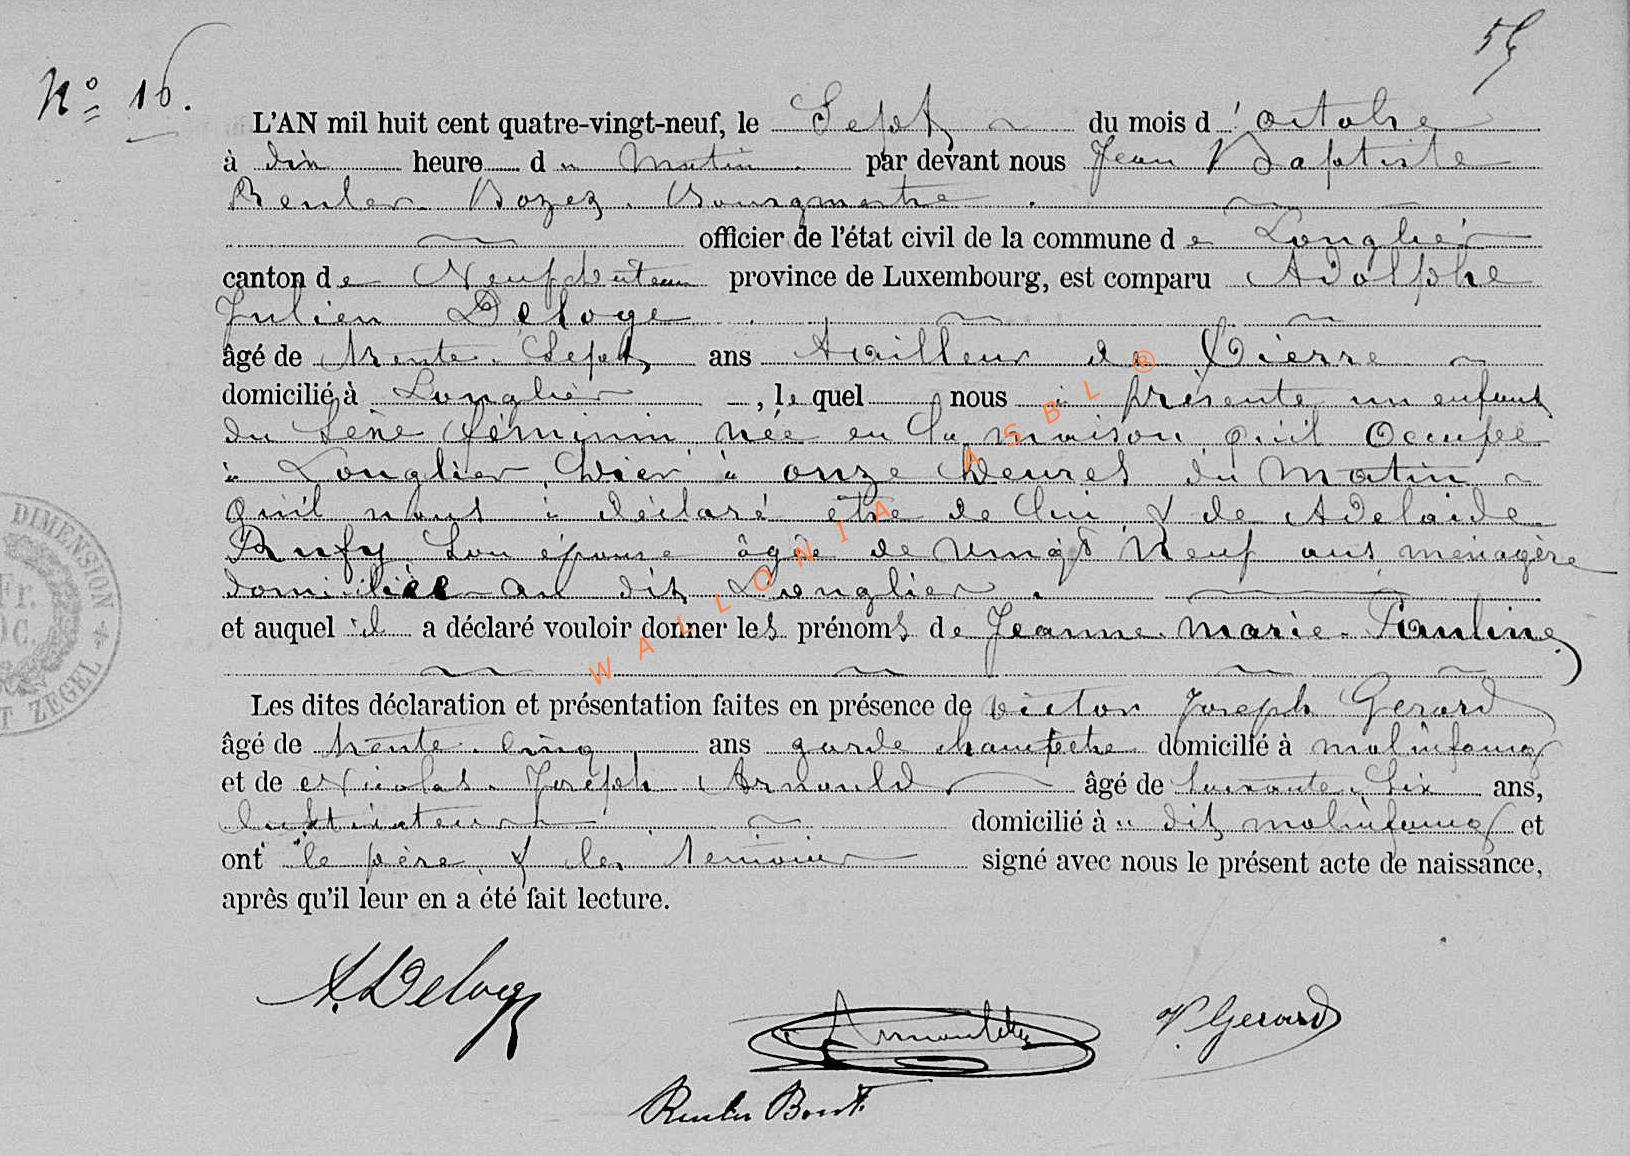 57
N° 16.
L'AN mil huit cent quatre-vingt-neuf, le Sept du mois d'octobre
à dix heure du Matin. par devant nous Jean Baptiste
Reuler Bozez. Bourgmestre.
officier de l'état civil de la commune de Longlier
canton de Neufchâteau province de Luxembourg, est comparu Adolphe
Julien Deloge
âgé de trente. Sept ans tailleur de Pierre
domicilié à Longlier, lequel nous à présenté un enfant
du Sexe féminin née en la maison qu'il occupée
à Longlier, hier à onze heures du Matin
qu'il nous à déclaré être de lui & de Adelaide
Rufy Son épouse âgée de vingt Neuf ans, ménagère
domiciliée au dit Longlier.
et auquel il a déclaré vouloir donner les prénoms de Jeanne. Marie. Pauline
Les dites déclaration et présentation faites en présence de victor Joseph Gerard
âgé de trente. cinq ans garde champetre domicilié à molinfaing
et de Nicolas. Joseph Arnould. âgé de Soixante. Six ans,
Instituteur domicilié à u dit molinfaing et
ont le père & les témoins signé avec nous le présent acte de naissance,
après qu'il leur en a été fait lecture.
A. Deloge
Arnould
V. Gerard
Reuler
DIMENSION
Fr.
C.
T ZEGEL
WALLONIA ASBL ®